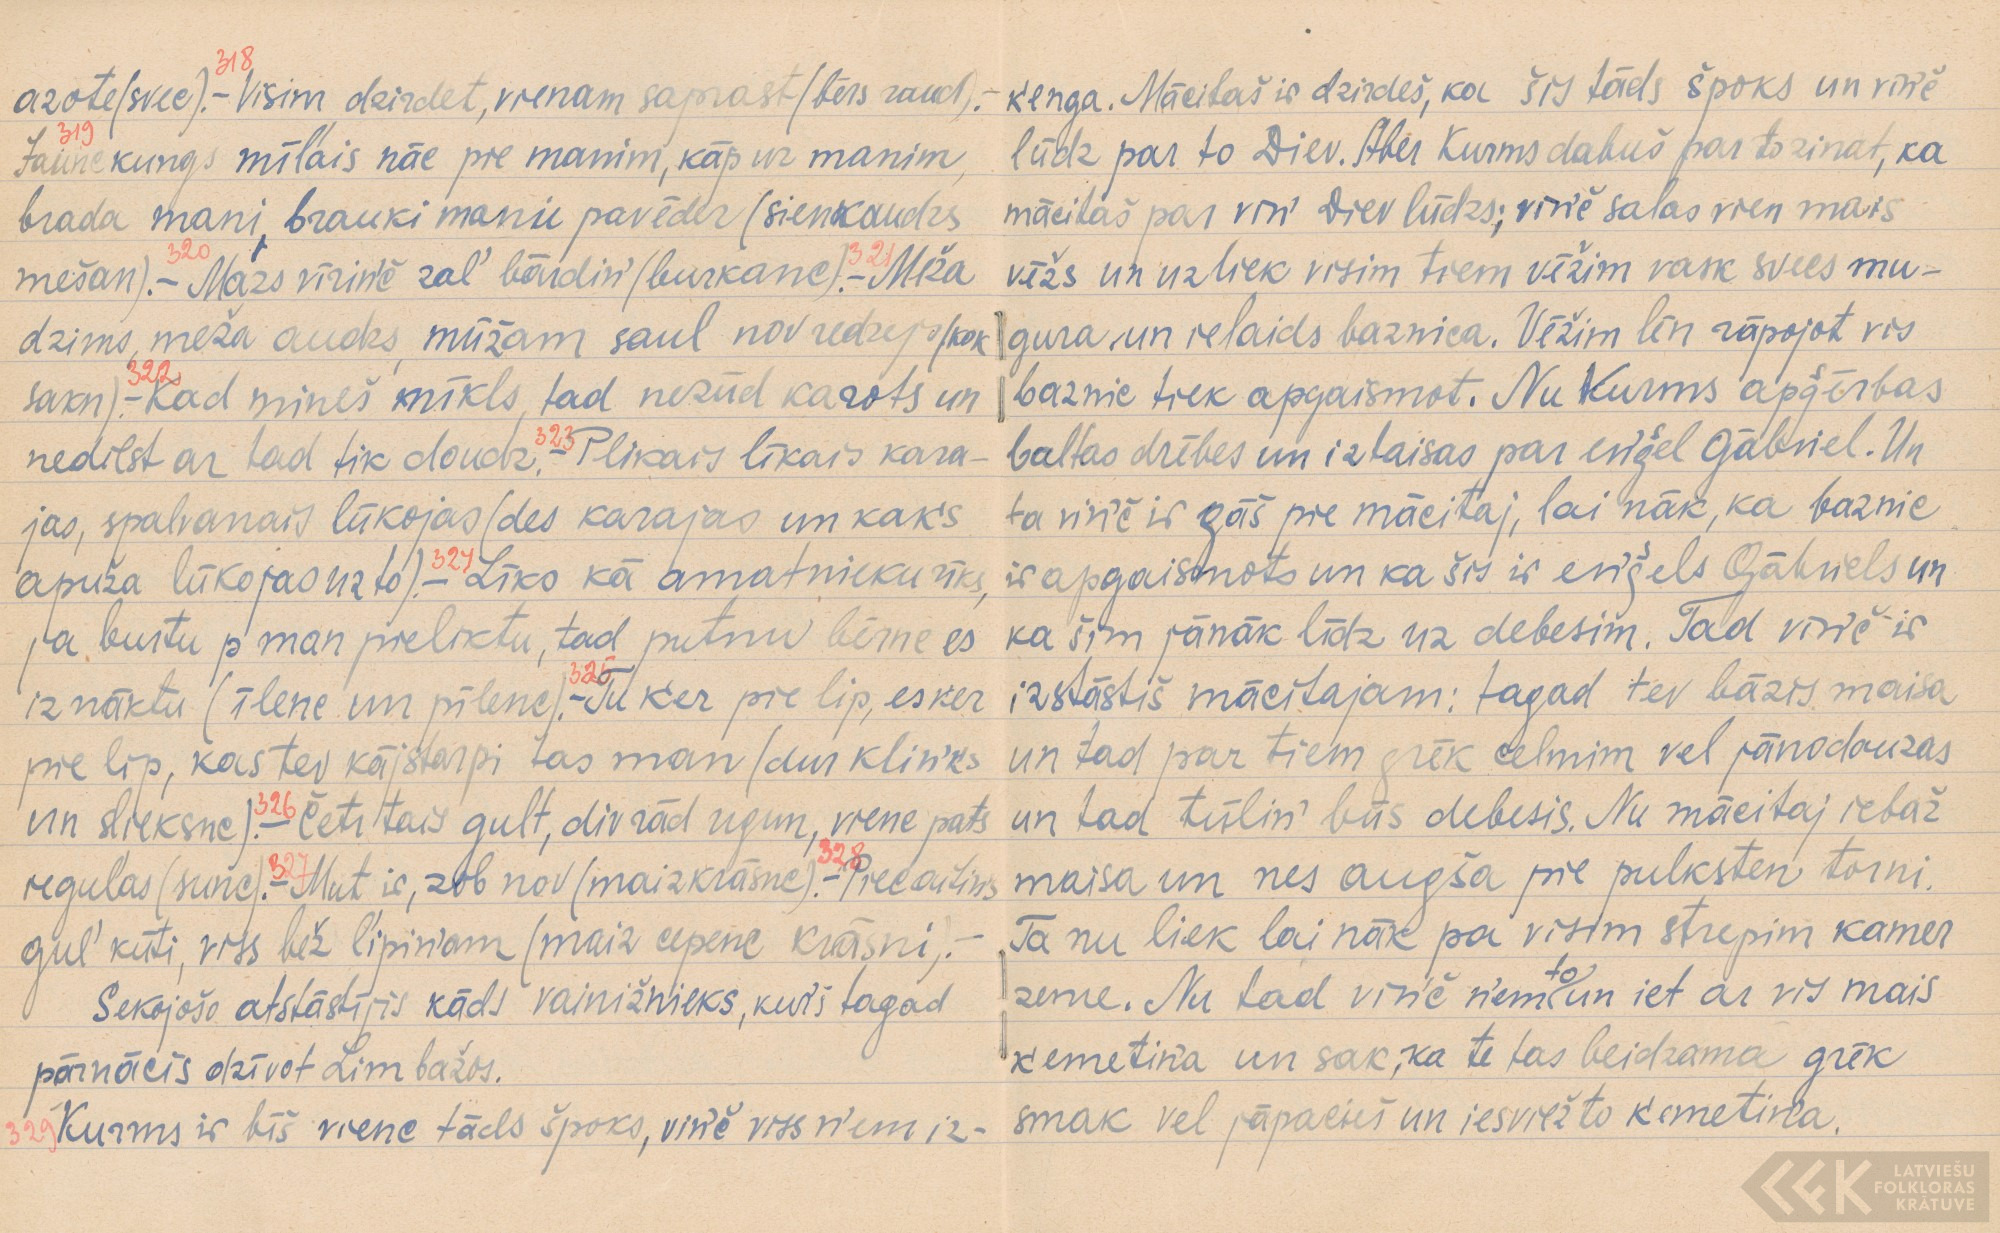 azote (svec). – 318 Visim dzirdet, vienam saprast (bērs raud). –
319 Jaunekungs mīlais nāc pie manim, kāp uz manim,
brada mani, brauki maniu pavēder (sienkaudzs
mešan). – 320 Mazs vīriņč zaļ bārdiņ (burkanc). – 321 Meža
dzims, meža audzs, mūžam saul nov redzejs (kok
sakn). – 322 Kad mineš mīkls, tad nezūd karots un
nedilst ar tad tik doudz. – 323 Plikais līkais kara-
jas, spalvanais lūkojas (des karajas un kaķs
apuža lūkojas uz to). – 324 Līks kā amatnieku rīks,
ja burtu p man pieliktu, tad putnu bērnc es
iznāktu (īlenc un pīlenc). – 325 Tu ķer pie lip, es ķer
pie lip, kas tev kājstarpi tas man (dur kliņķs
un slieksnc). – 326 Četr tais gult, div rād ugun, vienc pats
regulas (sunc). – 327 Mut ir, zob nov (maizkrāsnc). – 328 Piecaitiņs
guļ kūti, viss bež ļipiņam (maiz cepenc krāsni). –
Sekojošo atstāstījis kāds vainižnieks, kuŗš tagad
pārnācis dzīvot Limbažos.
329 Kurms ir bīš vienc tāds špoks, viņč viss ņem iz-
ķenga. Mācitaš ir dzirdeš, ka šis tāds špoks un viņč
lūdz par to Diev. Aber Kurms dabuš par to zinat, ka
mācitaš par viņ Diev lūdzs; viņč salas vien mais
vēžs un uzliek visim tiem vēžim vask svecs mu-
gura un ielaids baznica. Vēžim lēn rāpojot vis
baznic tiek apgaismot. Nu Kurms apģērbas
baltas drēbes un iztaisas par eņģel Gābriel. Un
ta viņč ir gāš pie mācitaj, lai nāk, ka baznic
ir apgaismots un ka šis ir eņģels Gābriels un
ka šim jānāk līdz uz debesim. Tad viņč ir
izstāstiš mācitajam: tagad tev bāzis maisa
un tad par tiem grēk celmim vel jānodauzas
un tad tūliņ būs debesis. Nu mācitaj iebaž
maisa un nes augša pie pulksten torni.
Ta nu liek lai nāk pa visim strepim kamer
zeme. Nu tad viņč ņem to un iet ar vis mais
ķemetiņa un sak, ka te tas beidzama grēk
smak vel jāpacieš un iesviež to ķemetiņa.
LATVIEŠU
FOLKLORAS
KRĀTUVE